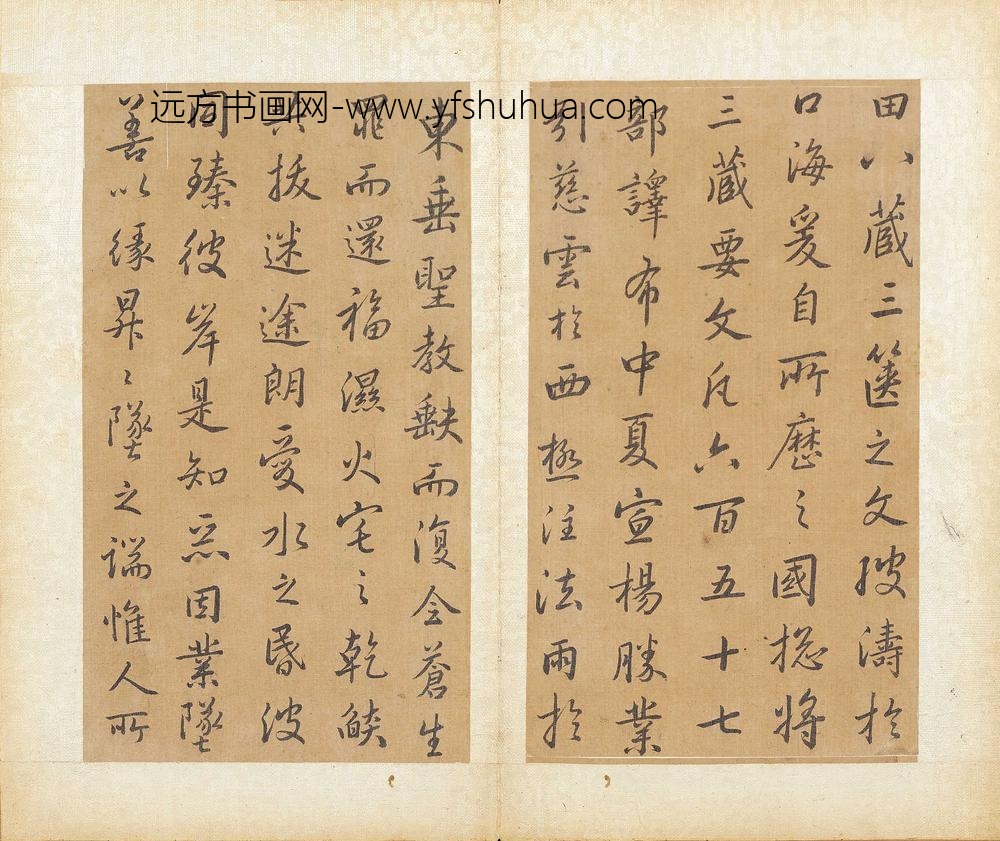 远方书画网-www.yfshuhua.com
田八藏三篋之文波濤於
口海爰自所歷之國揔將
三藏要文凡六百五十七
部譯布中夏宣楊勝業
引慈雲於西極注法雨於
東垂聖教缺而復全蒼生
罪而還福濕火宅之乾燄
共拔迷途朗愛水之昏波
同臻彼岸是知惡因業墜
善以緣昇〻墜之端惟人所